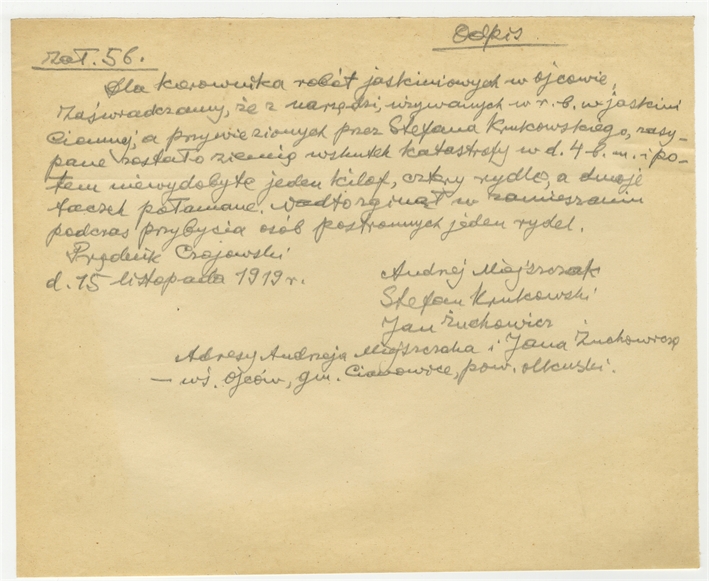 Odpis
Zał. 5b.
Dla kierownika robót jaskiniowych w Ojcowie.
Zaświadczamy, że z narzędzi, używanych w r. b. w jaskini
Ciemnej, a przywiezionych przez Stefana Krukowskiego, zasy-
pane zostało ziemią wskutek katastrofy w d. 4 b. m. i po-
tem niewydobyte jeden kilof, cztery rydle, a dwoje
taczek połamane. Nadto zginął w zamieszaniu
podczas przybycia osób postronnych jeden rydel.
Prądnik Czajowski
d. 15 listopada 1919 r.
Andrzej Miejszczak
Stefan Krukowski
Jan Żuchowicz
Adresy Andrzeja Miejszczaka i Jana Żuchowicza
— wś. Ojców, gm. Cianowice, pow. olkuski.